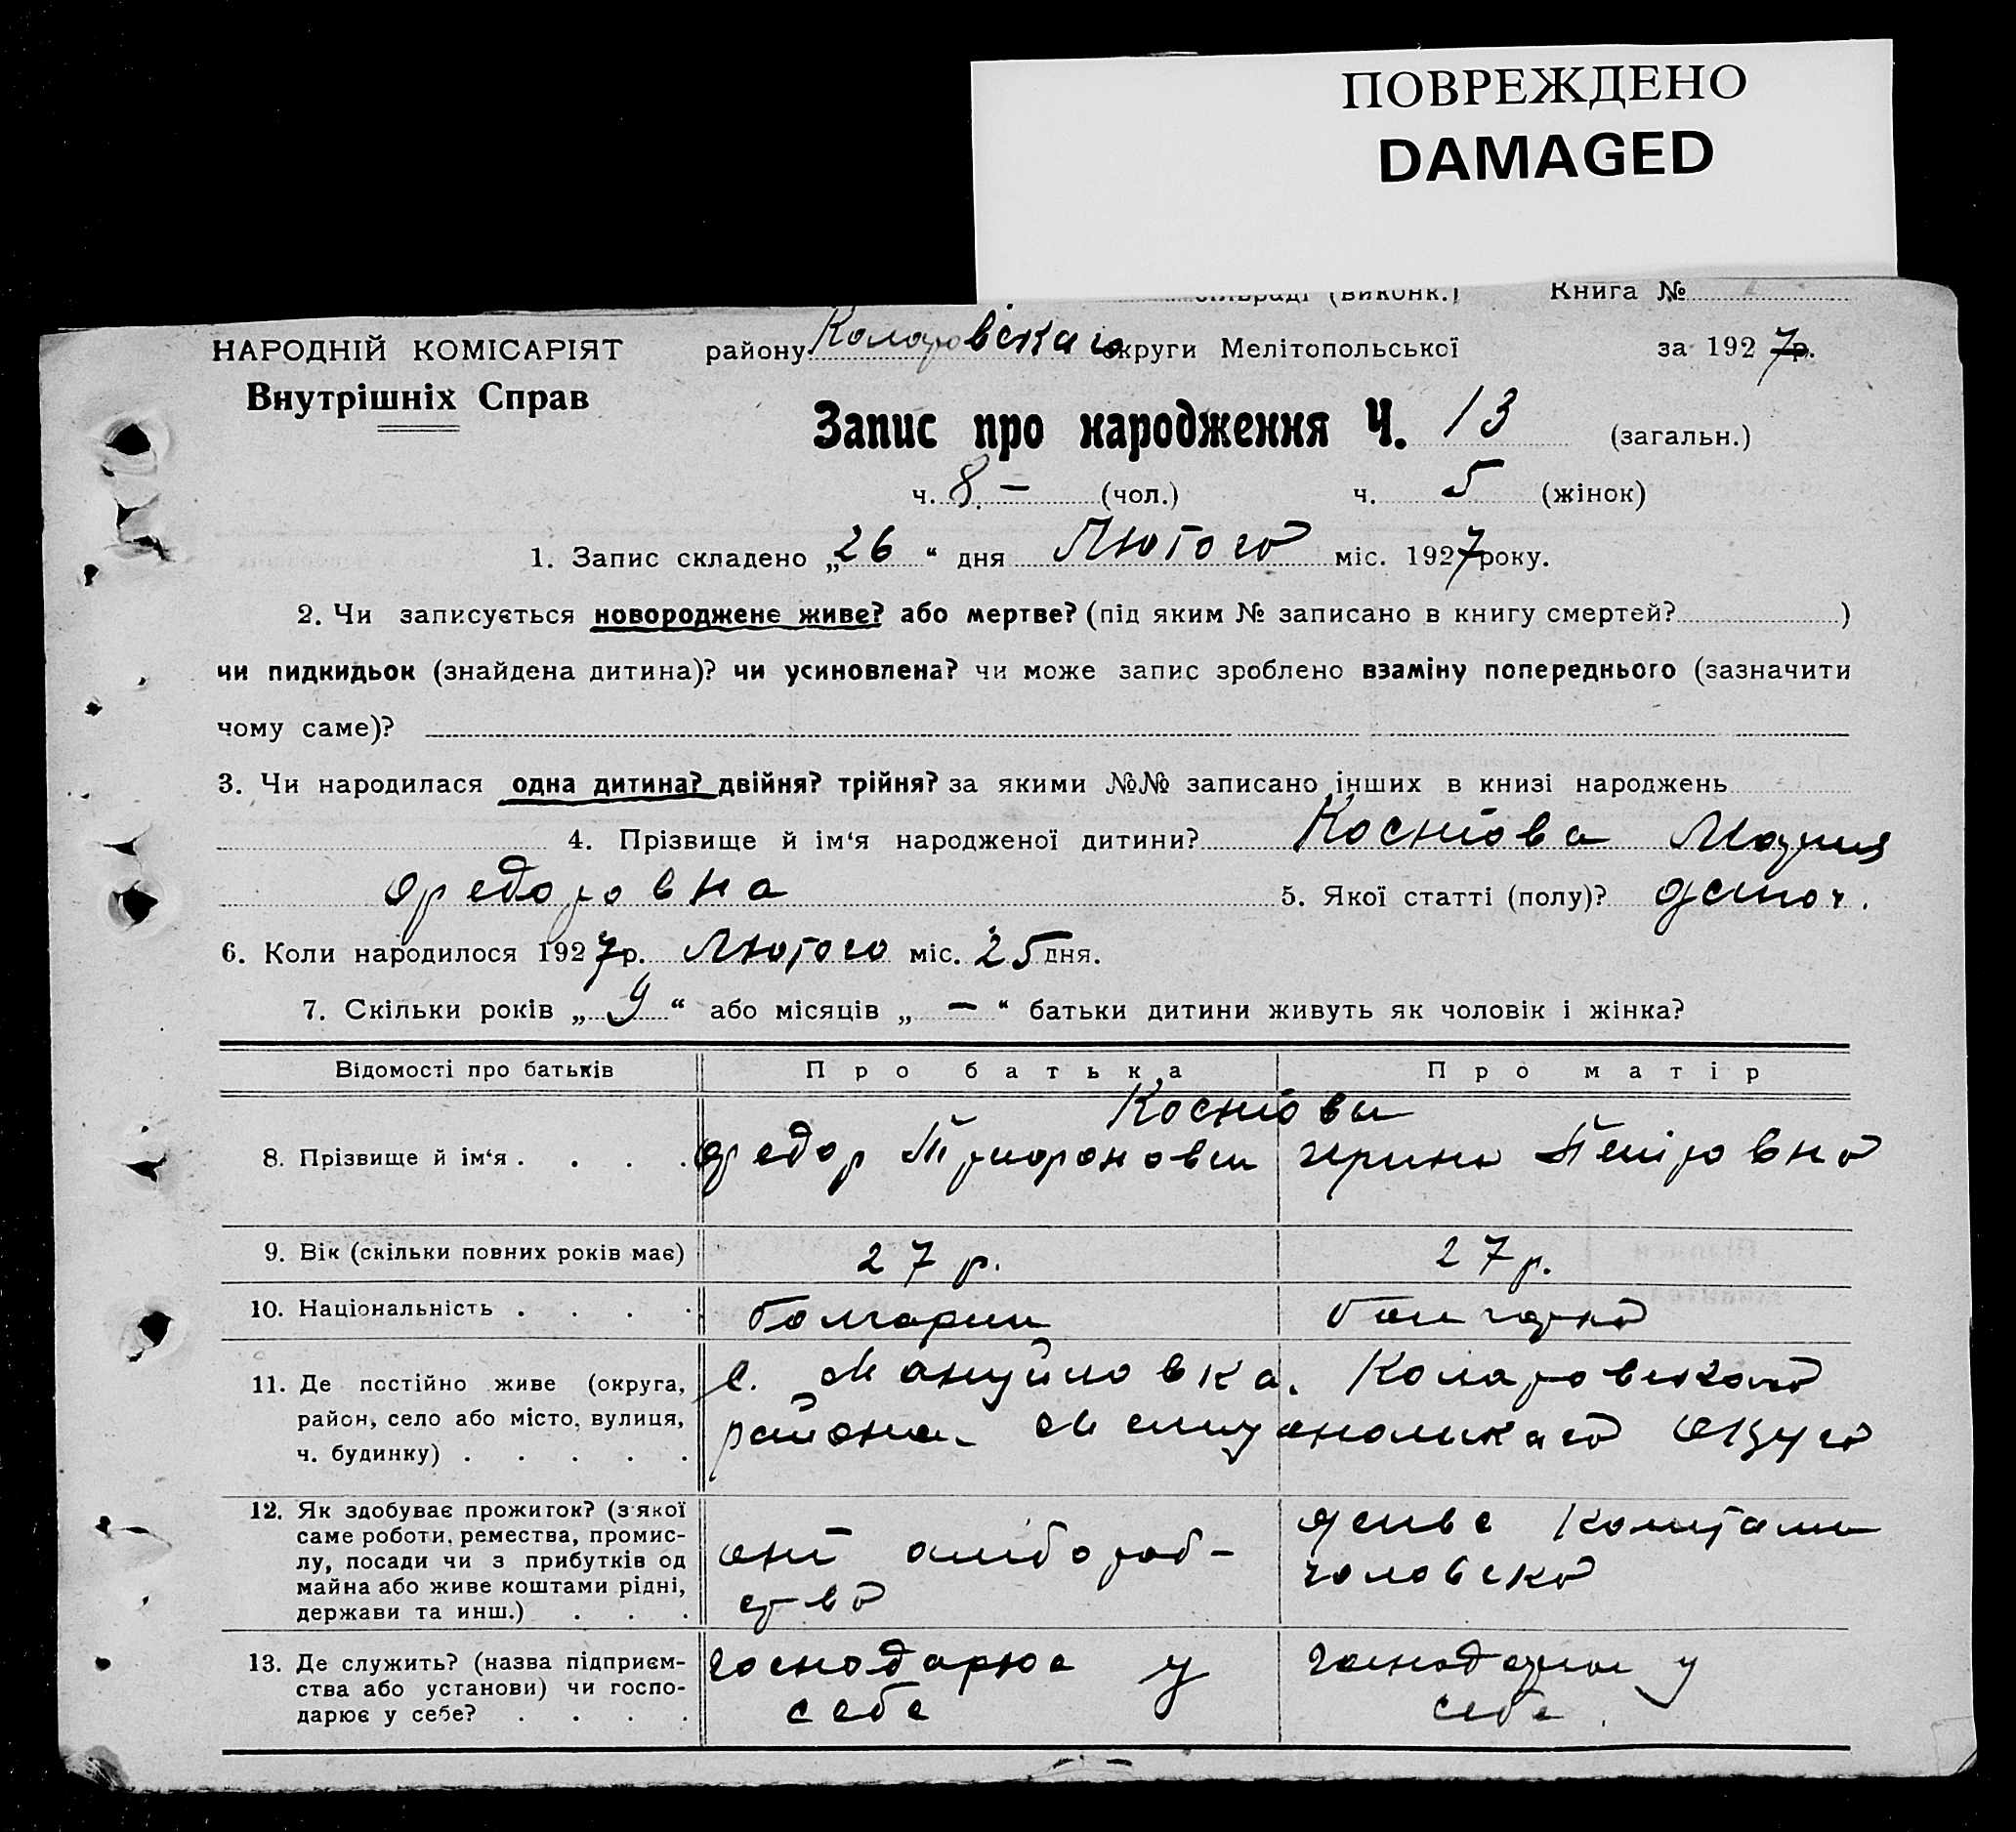 ПОВРЕЖДЕНО
DAMAGED
сільраді (виконк.) Книга №
НАРОДНІЙ КОМІСАРІЯТ району Коларовскаго округи Мелітопольської за 1927р.
Внутрішніх Справ
Запис про народження Ч. 13 (загальн.)
ч. 8 – (чол.) ч. 5 (жінок)
1. Запис складено „26“ дня Лютого міс. 1927 року.
2. Чи записується новороджене живе? або мертве? (під яким № записано в книгу смертей? )
чи пидкидьок (знайдена дитина)? чи усиновлена? чи може запис зроблено взаміну попереднього (зазначити
чому саме)?
3. Чи народилася одна дитина? двійня? трійня? за якими №№ записано інших в книзі народжень
4. Прізвище й ім‘я народженої дитини? Костова Мария
Федоровна 5. Якої статті (полу)?
6. Коли народилося 1927р. Лютого міс. 25 дня.
7. Скільки років „ “ або місяців „ – “ батьки дитини живуть як чоловік і жінка?
Відомості про батьків Про батька Про матір
Костови
8. Прізвище й ім‘я . . . . Федор Трифонович Ирина Петровна
9. Вік (скільки повних років має) 27 р. 27 р.
10. Національність . . . . болгарин болгарка
11. Де постійно живе (округа, с. Мануйловка. Коларовского
район, село або місто, вулиця, района
ч. будинку) . . . . .
12. Як здобуває прожиток? (з якої
саме роботи, ремества, промис- живе коштами
лу, посади чи з прибутків од хлібороб-
майна або живе коштами рідні, чоловіка
держави та инш.) . . . ство
13. Де служить? (назва підприєм- господарює у господарює у
ства або установи) чи госпо-
дарює у себе? . . . . себе себе.